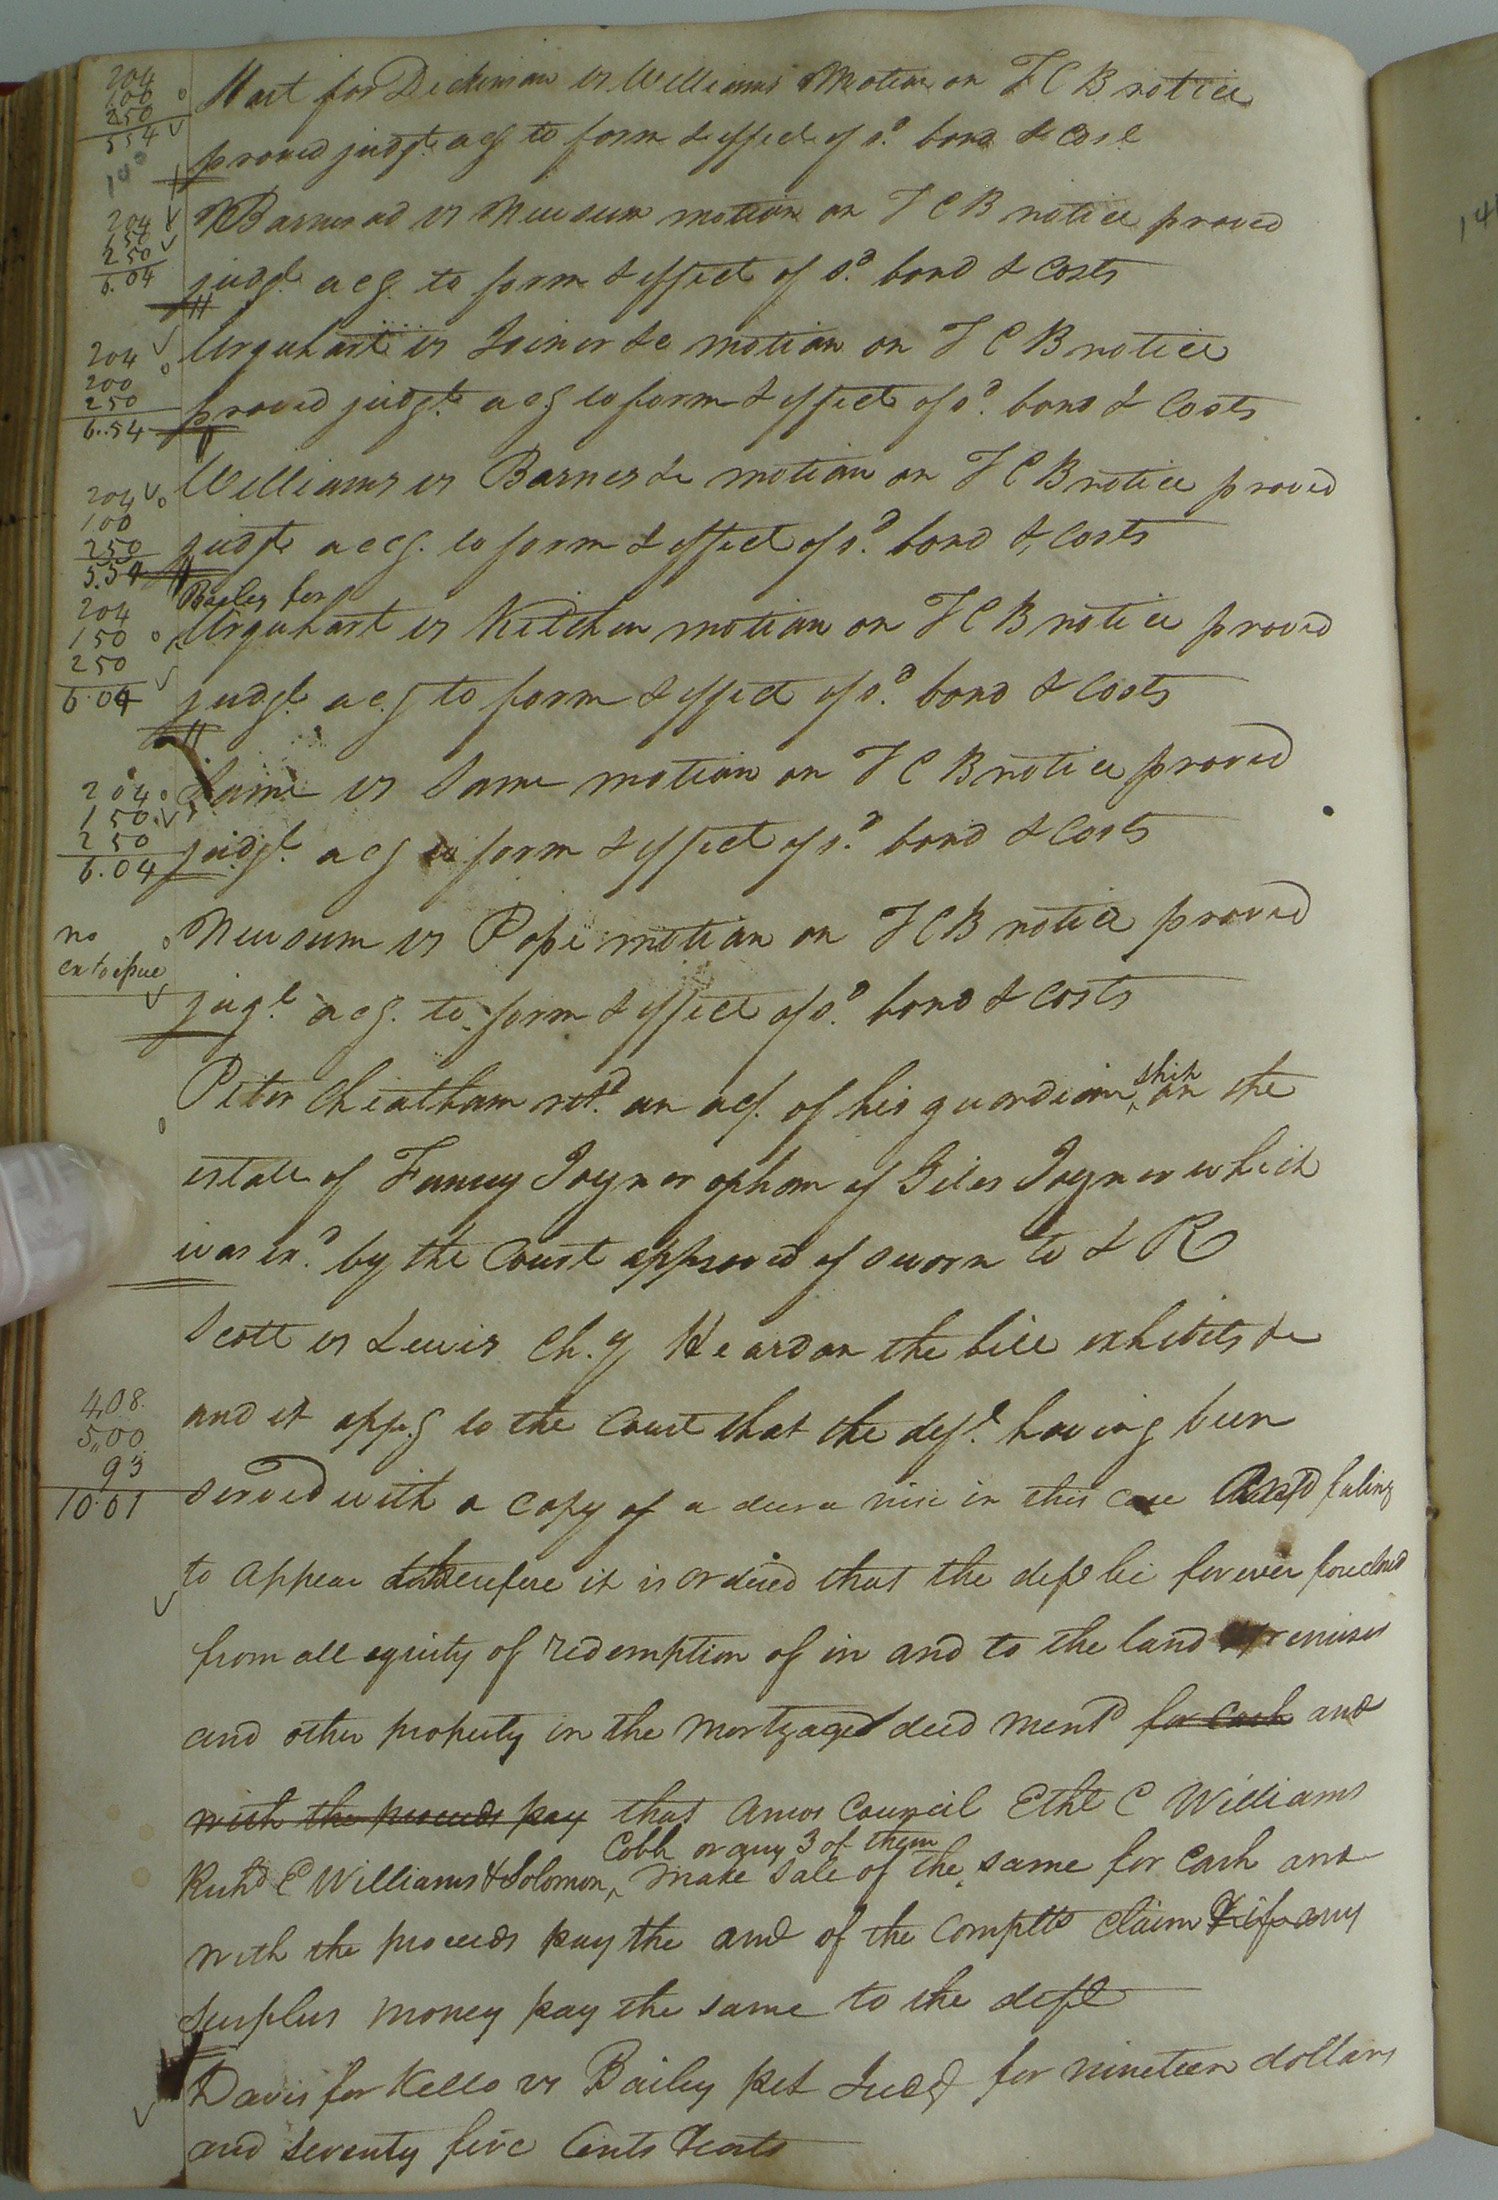 204
100
250
554
Hart for Dickinson vs Williams Motion on F C B notice
proved judgt. acg to form & effect of sd. bond & Cost
204
150
250
6.04
Barnes ad vs Newsum motion on F C B notice proved
judgt. acg. to form & effect of sd. bond & Costs
204
200
250
6.54
Urquhart vs Joiner &c motion on F C B notice
proved judgt. acg to form & effect of sd. bond & Costs
204
100
250
5.54
Williams vs Barnes &c motion on F C B notice proved
judgt accg. to form & effect of sd. bond & Costs
204
150
250
6.04
Bailey for
Urquhart vs Kitchen motion on F C B notice proved
judgt. acg to form & effect of sd. bond & Costs
204
150
250
6.04
Same vs Same motion on F C B notice proved
judgt. acg to form & effect of sd. bond & Costs
no
ex to issue
Newsum vs Pope motion on F C B notice proved
jugt. acg. to form & effect of sd. bond & Costs
Peter Cheatham retd. an act. of his guardianship on the
estate of Fanny Joyner ophan of Giles Joyner which
was exd. by the Court approved of sworn to & R
Scott vs Lewis Ch.y Heard on the bill exhibits &c
4,08.
5,00.
93
10.01
and it appg to the Court that the deft. having been
served with a copy of a decree nisi in this case failing
to appear therefore it is ordered that the deft be forever foreclosed
from all equity of redemption of in and to the land premises
and other property in the mortgaged deed mentd for cash and
with the proceeds pay that Amos Council Ethl C Williams
Cobb or any 3 of them
Richd E Williams & Solomon ^ make sale of the same for Cash and
with the proceeds pay the amt of the Complts claim & if any
surplus money pay the same to the deft
Davis for Kello vs Bailey pet Judgt for nineteen dollars
and seventy five Cents & costs